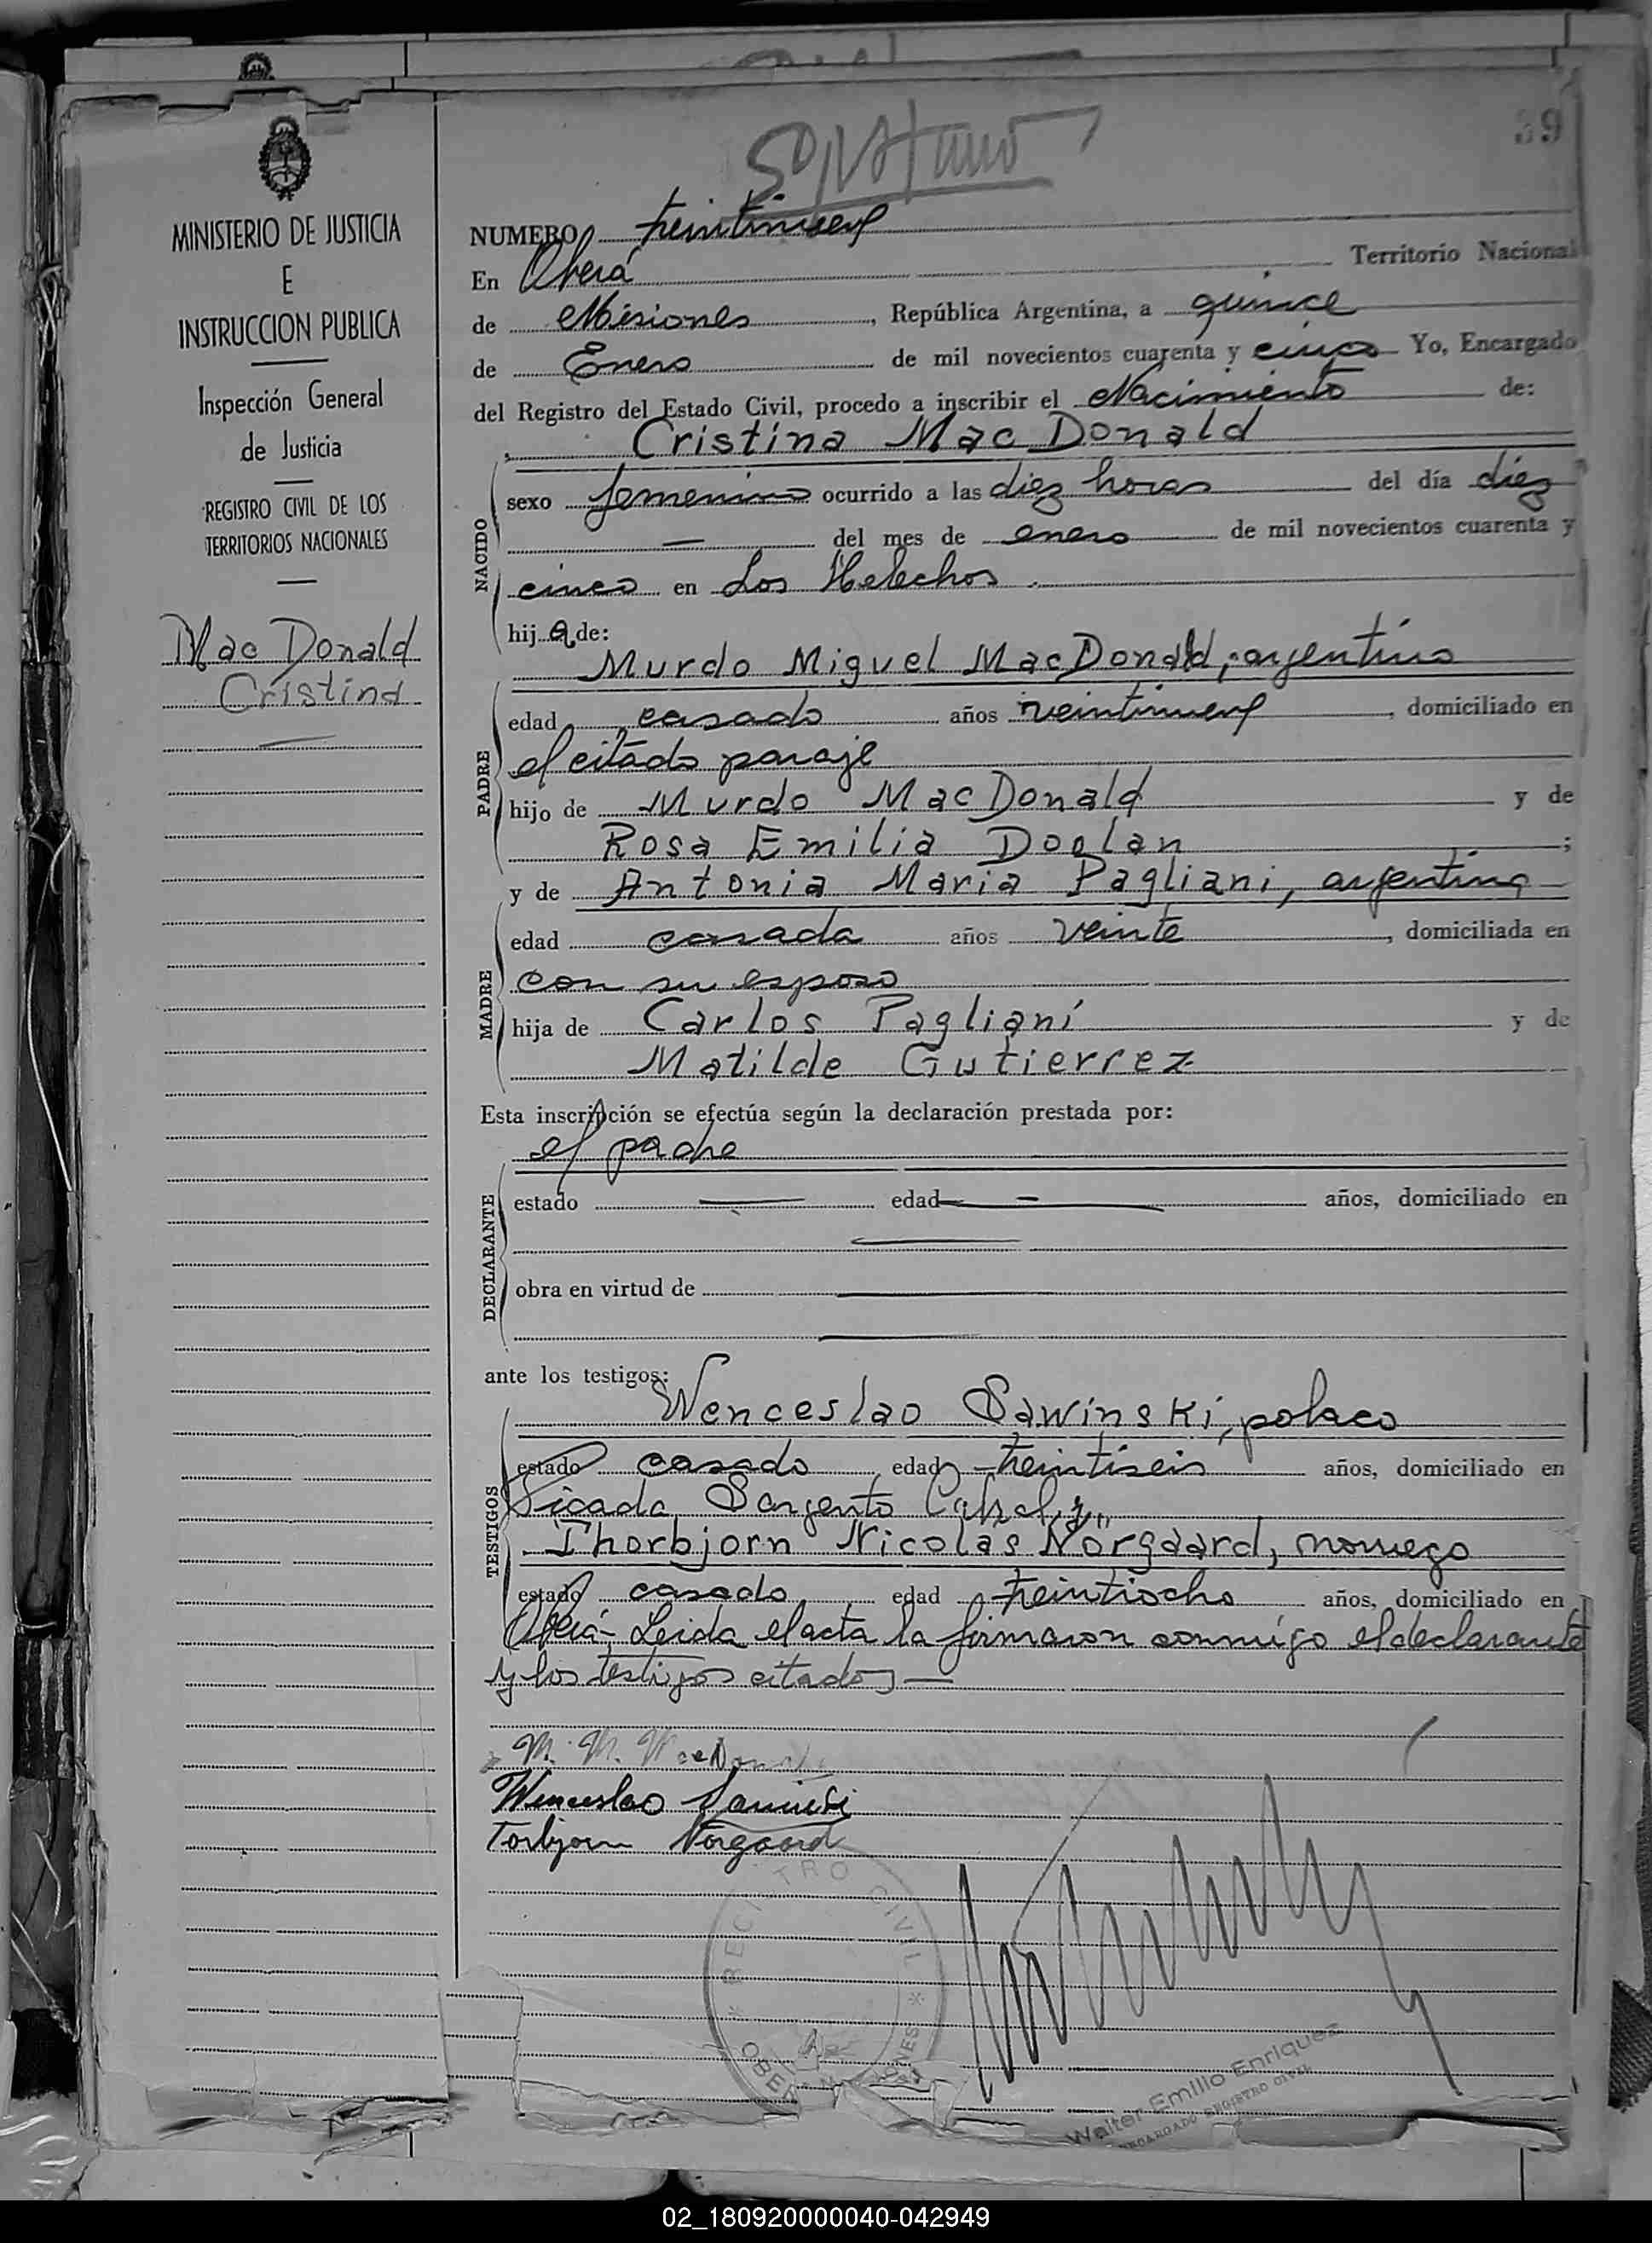 39
NUMERO treintinueve
En Oberá Territorio Nacional
de Misiones, República Argentina, a quince
de Enero de mil novecientos cuarenta y cinco Yo, Encargado
del Registro del Estado Civil, procedo a inscribir el Nacimiento de:
Cristina Mac Donald
NACIDO
sexo femenino ocurrido a las diez horas del día diez
— del mes de enero de mil novecientos cuarenta y
cinco en Los Helechos
hija de:
Murdo Miguel MacDonald, argentino
PADRE
edad casado años veintinueve, domiciliado en
el citado paraje
hijo de Murdo MacDonald y de
Rosa Emilia Doolan;
y de Antonia Maria Pagliani, argentina
MADRE
edad casada años veinte, domiciliada en
con su esposo
hija de Carlos Pagliani y de
Matilde Gutierrez
Esta inscripción se efectúa según la declaración prestada por:
el padre
DECLARANTE
estado — edad — años, domiciliado en
—
obra en virtud de —
—
ante los testigos:
Wenceslao Sawinski, polaco
TESTIGOS
estado casado, edad treintiseis años, domiciliado en
Picada Sargento Cabral, y
Thorbjorn Nicolas Nörgaard, noruego
estado casado edad treintiocho años, domiciliado en
Oberá.- Leida el acta la firmaron conmigo el declarante
y los testigos citados —
M. M. MacDonald
Wenceslao Sawinski
Torbjorn Norgaard
REGISTRO CIVIL
OBERA MISIONES
Walter Emilio Enriquez
ENCARGADO REGISTRO CIVIL
MINISTERIO DE JUSTICIA
E
INSTRUCCION PUBLICA
Inspección General
de Justicia
REGISTRO CIVIL DE LOS
TERRITORIOS NACIONALES
Mac Donald
Cristina
02_180920000040-042949